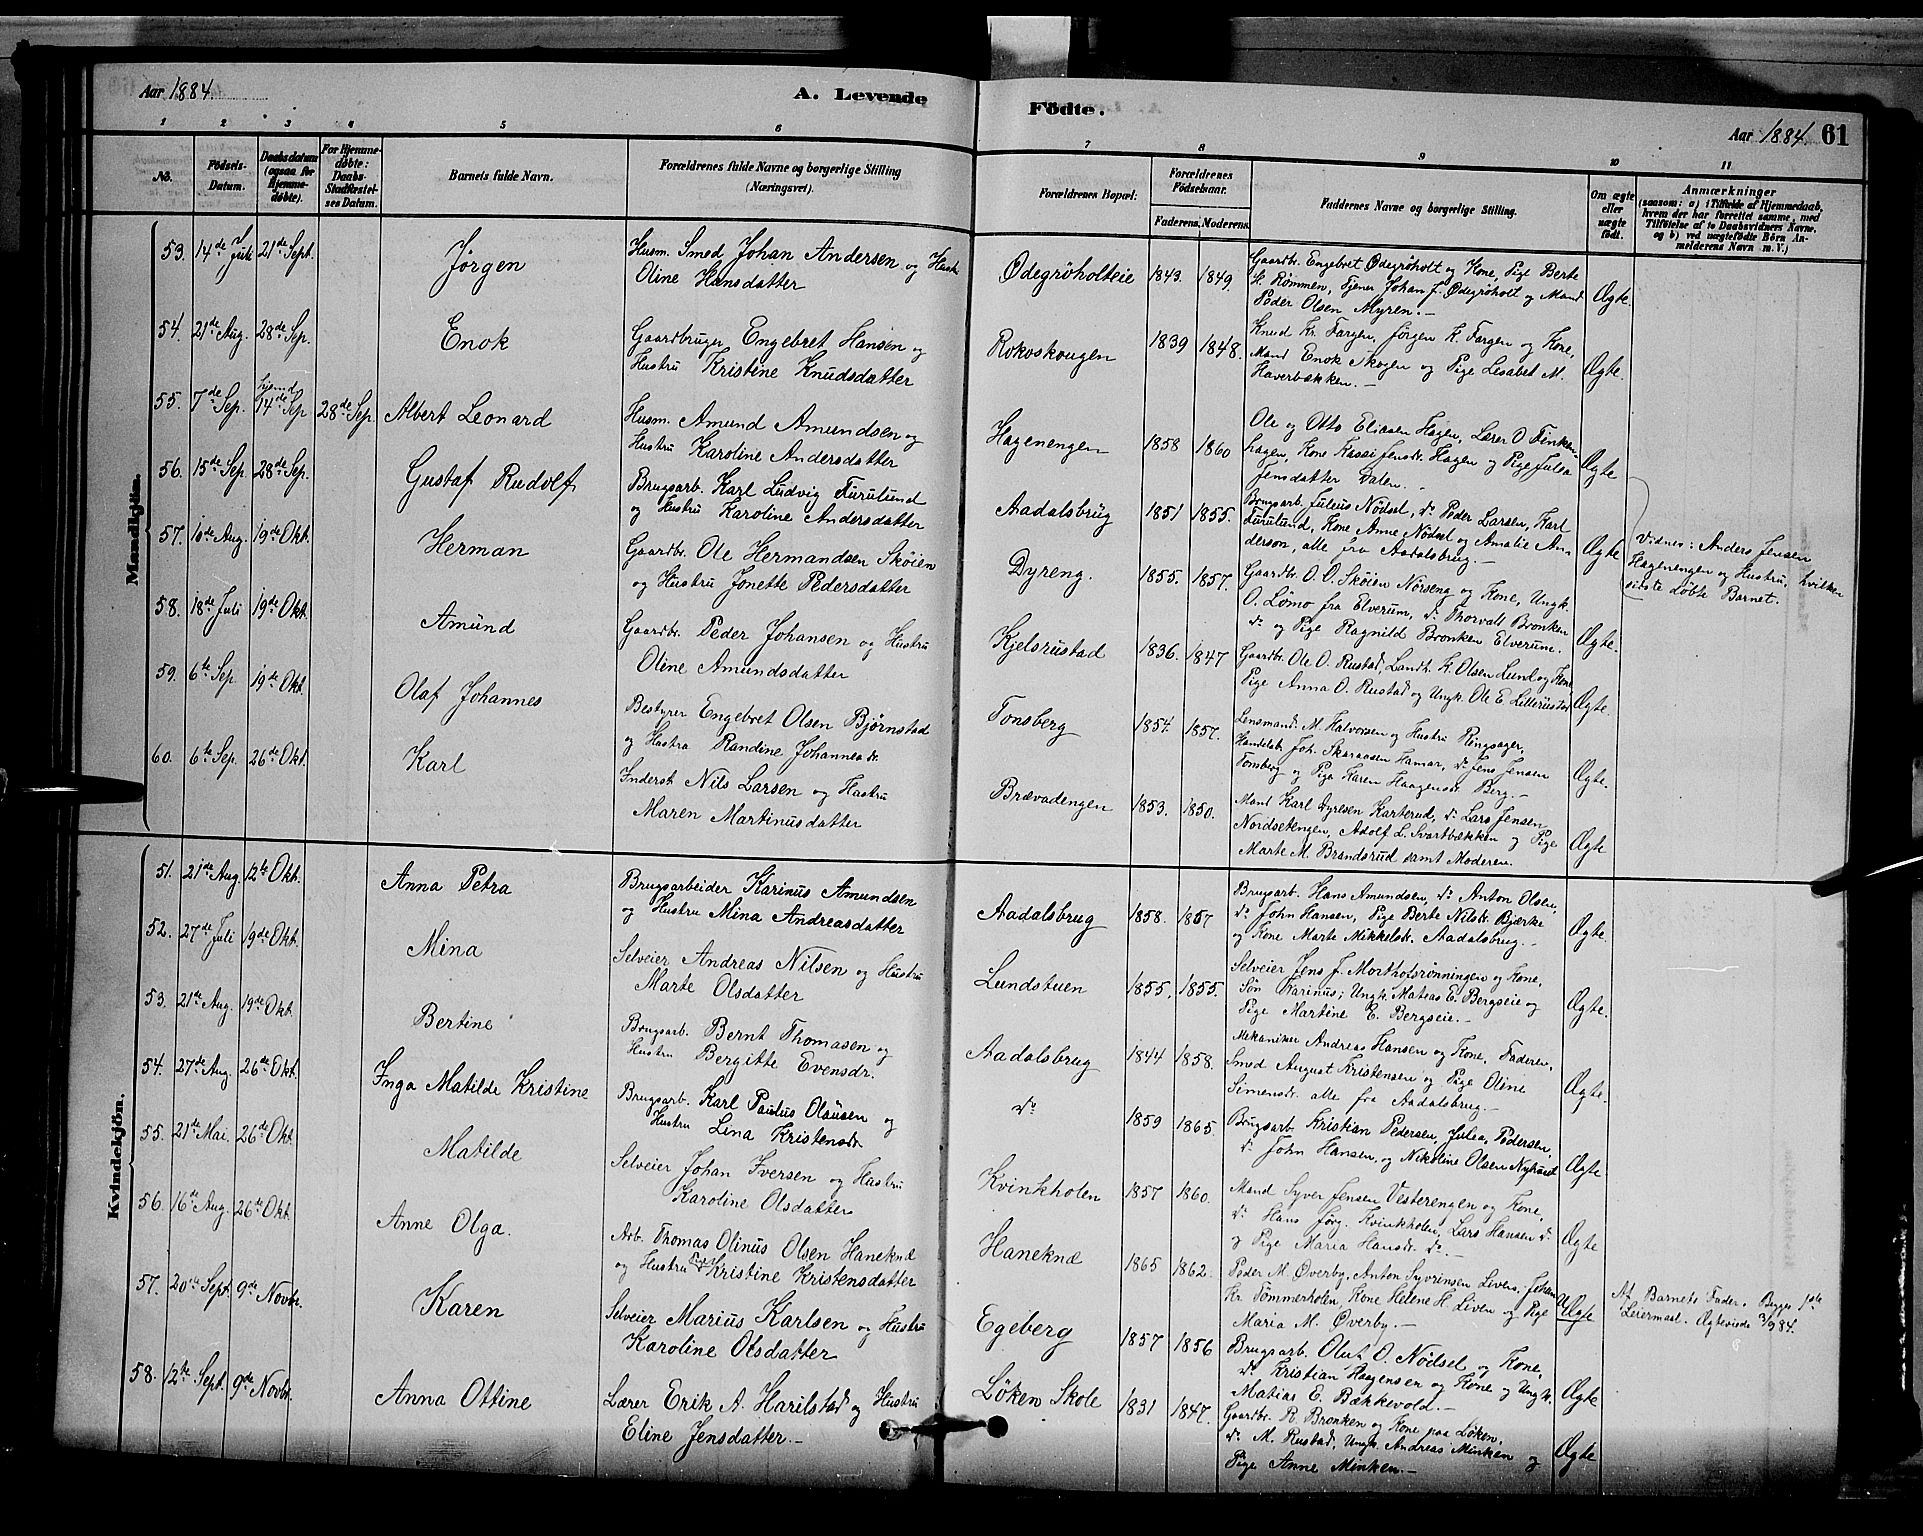 Aar 1884.
A. Levende
Födte.
Aar 1884. 61
1 2 3 4 5 6 7 8 9 10 11
No.
Födsels-Datum.
Daabsdatum (ogsaa for Hjemme-døbte).
For Hjemme-døbte: Daabs-Stadfæstelses Datum.
Barnets fulde Navn.
Forældrenes fulde Navne og borgerlige Stilling (Næringsvei).
Forældrenes Bopæl.
Forældrenes Födselsaar.
Faderens. Moderens.
Faddernes Navne og borgerlige Stilling.
Om ægte eller uægte födt.
Anmærkninger
(saasom: a) i Tilfælde af Hjemmedaab, hvem der har forrettet samme, med Tilföielse af to Daabsvidners Navne, og b) ved uægtefödte Börn Anmelderens Navn m. V.)
Mandkjön.
53. 14de Juli 21de Sept. Jørgen
Husm. Smed Johan Andersen og Hust.
Oline Hansdatter
Ødegrøholteie 1843. 1849.
Gaardbr. Engebret Ødegrøholt og Kone, Pige Berte
K. Rømmen, Tjener Johan J. Ødegrøholt og Mand
Peder Olsen Myren.—
Ægte.
54. 21de Aug. 28de Sep. Enok
Gaardbruger Engebret Hansen og
Hustru Kristine Knudsdatter
Rokoskougen 1839 1848.
Knud Kr. Fargen, Jørgen K. Fargen og Kone,
Mand Enok Skogen og Pige Lisabet M.
Haverbækken.—
Ægte.
55. 7de Sep. hjemd. 14de Sep 28de Sep. Albert Leonard
Husm. Amund Amundsen og
Hustru Karoline Andersdatter
Hagenengen 1858 1860
Ole og Otto Eliasen Hagen, Lærer O Finken-
hagen, Kone Kassi Jensdr. Hagen og Pige Julia
Jensdatter Dalen.—
Ægte
Vidner: Anders Jensen
Hagenengen og Hustru, hvilken
sidste døbte Barnet.
56. 15de Sep. 28de Sep. Gustaf Rudolf
Brugsarb. Karl Ludvig Furulund
og Hustru Karoline Andersdatter
Aadalsbrug 1851 1855.
Brugsarb. Juleus Nødsel, do Peder Larsen, Karl
Furulund, Kone Anne Nødsel og Amalie An-
derson, alle fra Aadalsbrug.—
Ægte
57. 10de Aug. 19de Okt. Herman
Gaardbr. Ole Hermandsen Skøien
og Hustru Jonette Pedersdatter
Dyreng. 1855. 1857.
Gaardbr. O. O. Skøien Nørseng og Kone, Ungk.
O. Lømo fra Elverum, do Thorvatt Bronken
do og Pige Ragnild Bronken Elverum.
Ægte.
58. 18de Juli 19de Okt. Amund
Gaardbr. Peder Johansen og Hustru
Oline Amundsdatter
Kjelsrustad 1836. 1847
Gaardbr. Ole O. Rustad, Landh. K. Olsen Lund og Kone
Pige Anna O. Rustad og Ungk. Ole E. Lillerustad
Ægte.
59. 6te Sep 19de Okt. Olaf Johannes
Bestyrer Engebret Olsen Bjørnstad
og Hustru Randine Johannesdr.
Tonsberg 1854. 1857.
Lensmand M. Halvorsen og Hustru Ringsager,
Handelsb. Joh. Skaraasen Hamar, do Jens Jensen
Tonsberg og Pige Karen Haagensdr. Berg.—
Ægte.
60. 6te Sep. 26de Okt. Karl
Inderst Nils Larsen og Hustru
Maren Martinusdatter
Brævadengen 1853. 1850.
Mand Karl Syversen Karterud, do Lars Jensen
Nordsetengen, Adolf L. Svartbækken og Pige
Marte M. Brandsrud samt Moderen.
Ægte
Kvindekjön.
51. 21de Aug. 12te Okt. Anna Petra
Brugsarbeider Karinus Amundsen
og Hustru Mina Andreasdatter
Aadalsbrug 1858. 1857
Brugsarb. Hans Amundsen, do Anton Olsen,
do John Hansen, Pige Berte Nilsdr. Bjærke
og Kone Marte Mikkelsdr. Aadalsbrug.—
Ægte.
52. 27de Juli 19de Okt. Mina
Selveier Andreas Nilsen og Hustru
Marte Olsdatter
Lundstuen 1855. 1855.
Selveier Jens J. Mortholsrønningen og Kone,
Søn Karinus; Ungk. Mateas E. Bergseie og
Pige Martine E. Bergseie.—
Ægte.
53. 21de Aug. 19de Okt. Bertine
Brugsarb. Bernt Thomasen og
Hustru Bergitte Evensdr.
Aadalsbrug 1844 1858.
Mekaniker Andreas Hansen og Kone, Faderen,
Smed August Kristensen og Pige Oline
Simensdr. alle fra Aadalsbrug.—
Ægte.
54. 27de Aug. 26de Okt. Inga Matilde Kristine
Brugsarb. Karl Paulus Olausen og
Hustru Lina Kristensdr.
do 1859 1865.
Brugsarb. Kristian Pedersen, Julea Pedersen,
do John Hansen, og Nikoline Olsen Nyhuset
Ægte
55. 21de Mai. 26de Okt. Matilde
Selveier Johan Iversen og Hustru
Karoline Olsdatter
Kvinkholen 1857 1860.
Mand Syver Jensen Vesterengen og Kone,
do Hans Jørg. Kvinkholen, Lars Hansen do
og Pige Maria Hansdr. do.—
Ægte
56. 16de Aug. 26de Okt. Anne Olga.
Arb. Thomas Olinus Olsen Hanekne
og Hustru Kristine Kristensdatter
Hanekne 1865 1862.
Peder M. Øverby, Anton Syvrinsen Liven, Johan
Kr. Tømmerholen, Kone Helene H. Liven og Pige
Maria M. Øverby.—
U Ægte
Af Barnets Fader. Begges 1ste
Leiermaal. Ægteviede 3/9 84.
57. 20de Sept. 9de Novbr. Karen
Selveier Marius Karlsen og Hustru
Karoline Olsdatter
Egeberg 1857 1856
Brugsarb. Oluf O. Nødsel og Kone,
do Kristian Haagensen og Kone og Ungk.
Matias E. Bækkevold.—
Ægte
58. 12te Sept. 9de Novbr. Anna Ottine
Lærer Erik A. Harilstad og Hustru
Eline Jensdatter.—
Løken Skole 1831 1847.
Gaardbr. R. Bronken og Kone paa Løken,
do M. Rustad, Ungk. Andreas Minken og
Pige Anne Minken.—
Ægte